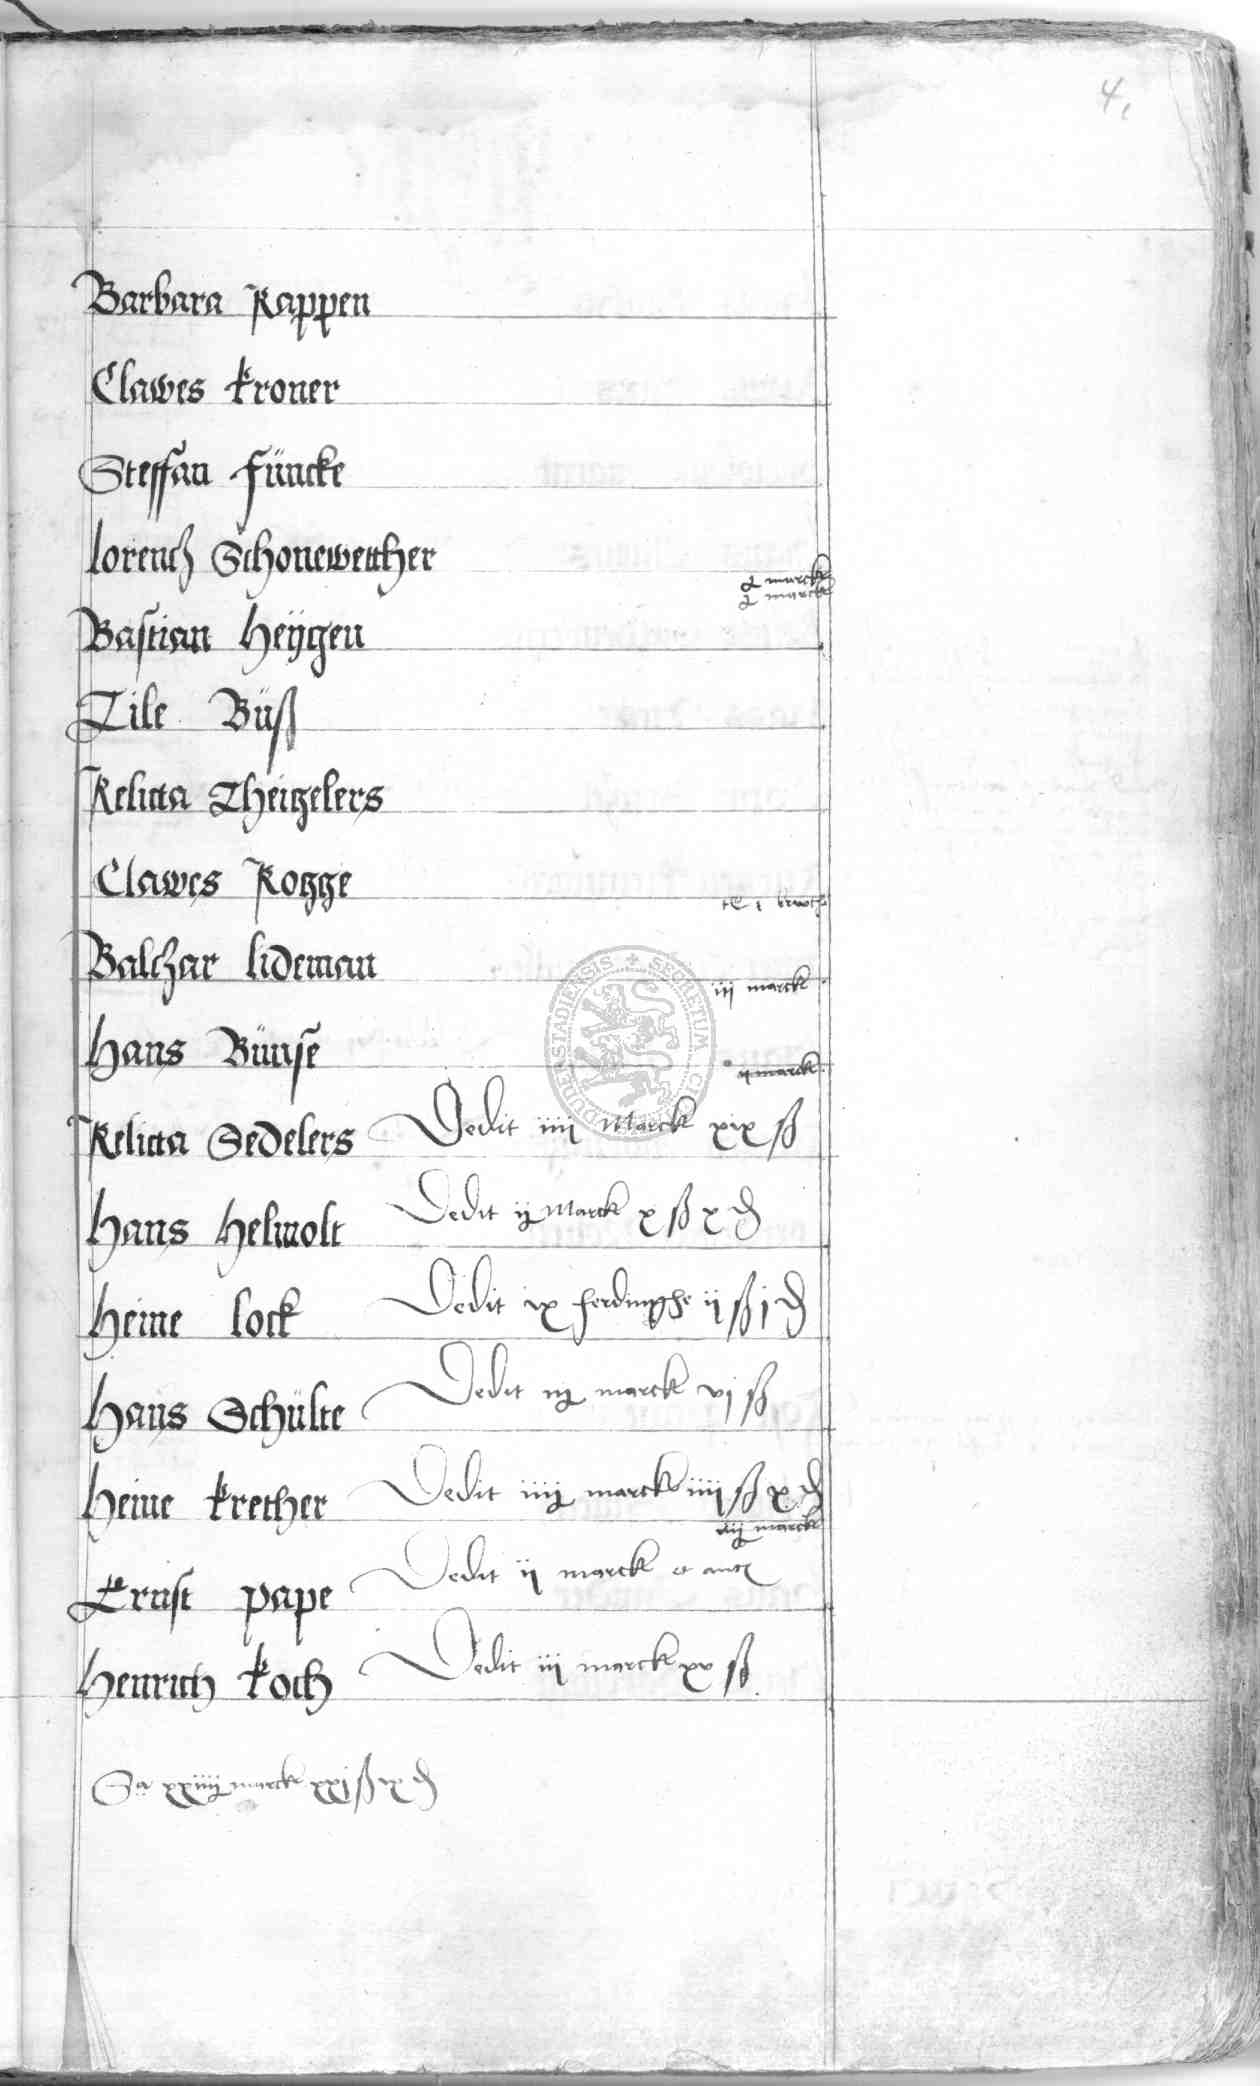 4
Barbara Rappen
Clawes kroner
Steffan Füncke
lorencz Schonewetther
marck
marck
Bastian Heÿgen
Tile Büß
Relicta Theitzelers
Clawes Rogge
Balczar lideman
iij marck
Hans Bünse
ij marck
Relicta Sedelers Dedit iiij Marck xix ß
Hans Helmolt Dedit ij Marck x ß x ₰
Heine lock Dedit ix ferdinghe ij ß j ₰
Hans Schülte Dedit marck vj ß
Heine krether Dedit marck iiij ß x ₰
marck
Ernst pape Dedit ij marck
Henrich koch Dedit iij marck xv ß
Sa marck xxj ß ix ₰
SECRETUM DUDERSTADIENSIS